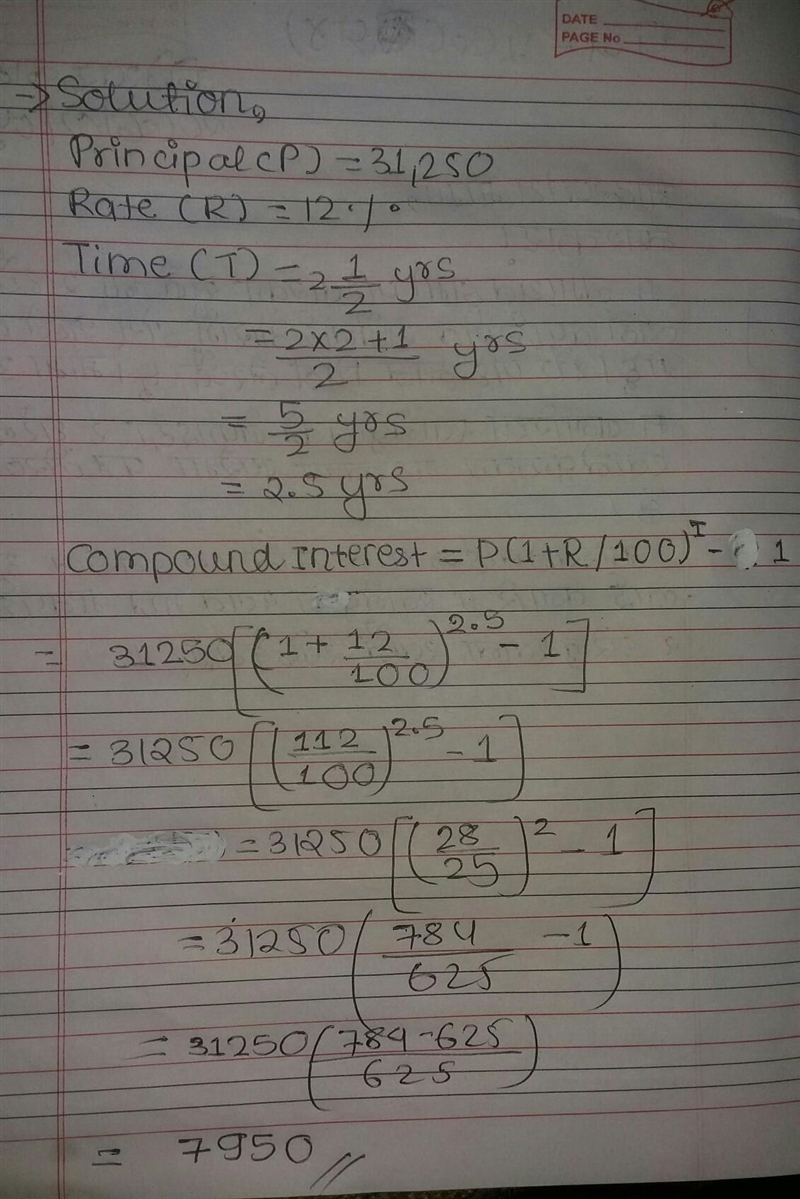 DATE
PAGE No
⇒ Solution,
Principal(P) = 31,250
Rate (R) = 12%
Time (T) = 2 1/2 yrs
= 2×2+1/2 yrs
= 5/2 yrs
= 2.5 yrs
Compound Interest = P(1+R/100)^T - 1
= 31250[(1+12/100)^2.5 - 1]
= 31250[(112/100)^2.5 - 1]
= 31250[(28/25)^2 - 1]
= 31250(784/625 - 1)
= 31250(784-625/625)
= 7950 //